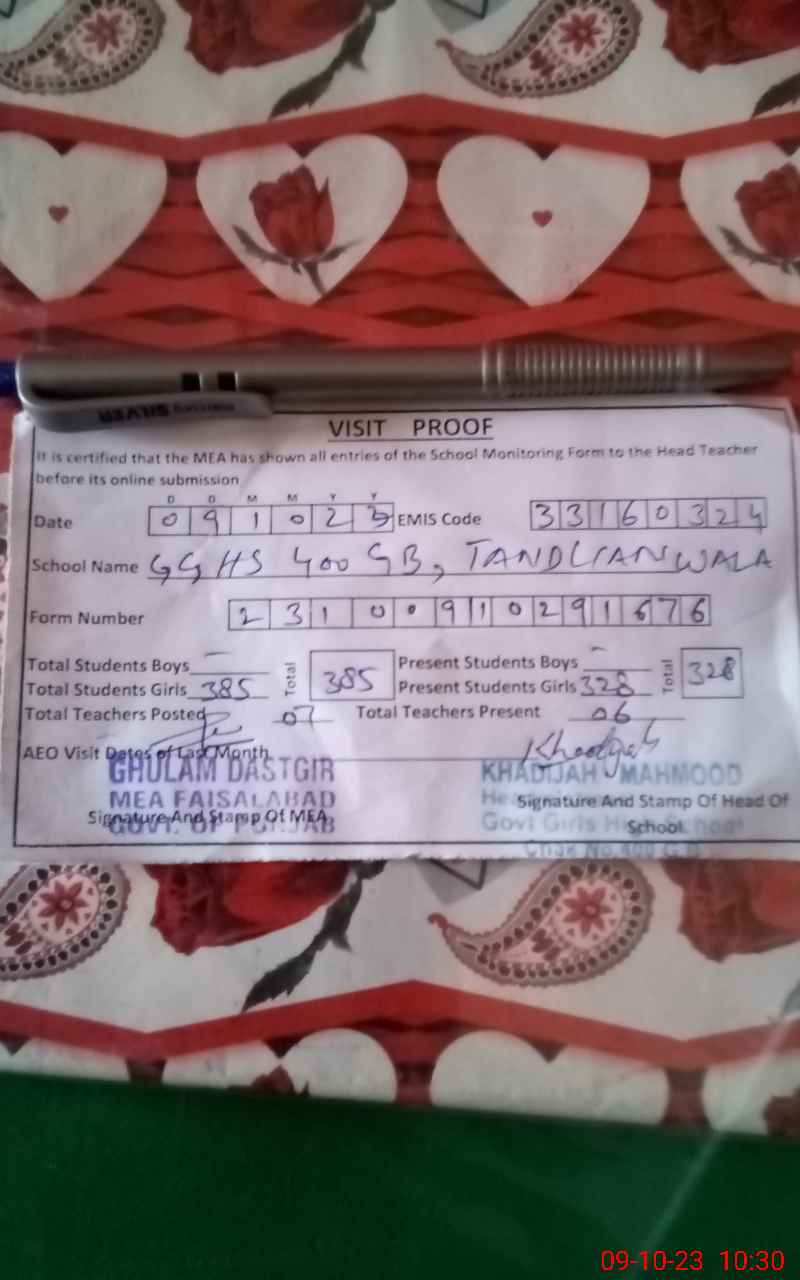 SILVER
VISIT PROOF
It is certified that the MEA has shown all entries of the School Monitoring Form to the Head Teacher
before its online submission
D D M M Y Y
Date 0 9 1 0 2 3 EMIS Code 3 3 1 6 0 3 2 4
School Name GGHS 400 GB, TANDLIANWALA
Form Number 2 3 1 0 0 9 1 0 2 9 1 6 7 6
Total Students Boys - Total 385 Present Students Boys - Total 328
Total Students Girls 385 Present Students Girls 328
Total Teachers Posted 07 Total Teachers Present 06
AEO Visit Dates of Last Month
Khadijah
GHULAM DASTGIR KHADIJAH MAHMOOD
MEA FAISALABAD
Signature And Stamp Of MEA Signature And Stamp Of Head Of
GOVT. OF PUNJAB Govt Girls High School
School
Chak No.400 G.B
09-10-23 10:30